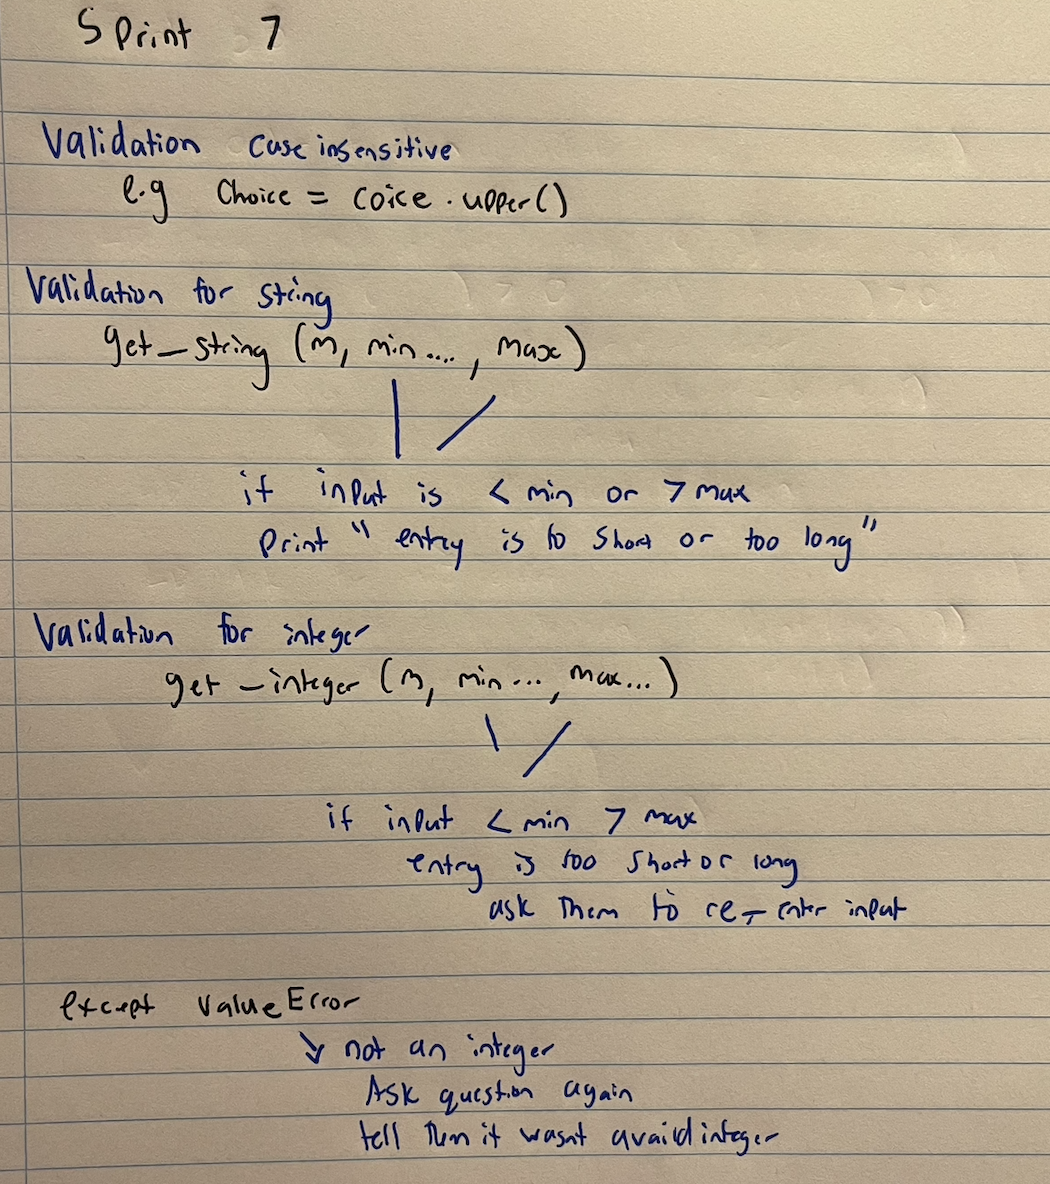 Sprint 7
Validation case insensitive
e.g Choice = coice.upper()
Validation for string
get_string (m, min...., max)
if input is < min or > max
Print " entry is to short or too long"
Validation for integer
get_integer (m, min..., max...)
if input < min > max
entry is too short or long
ask them to re-enter input
except ValueError
↘ not an integer
Ask question again
tell them it wasnt availd integer